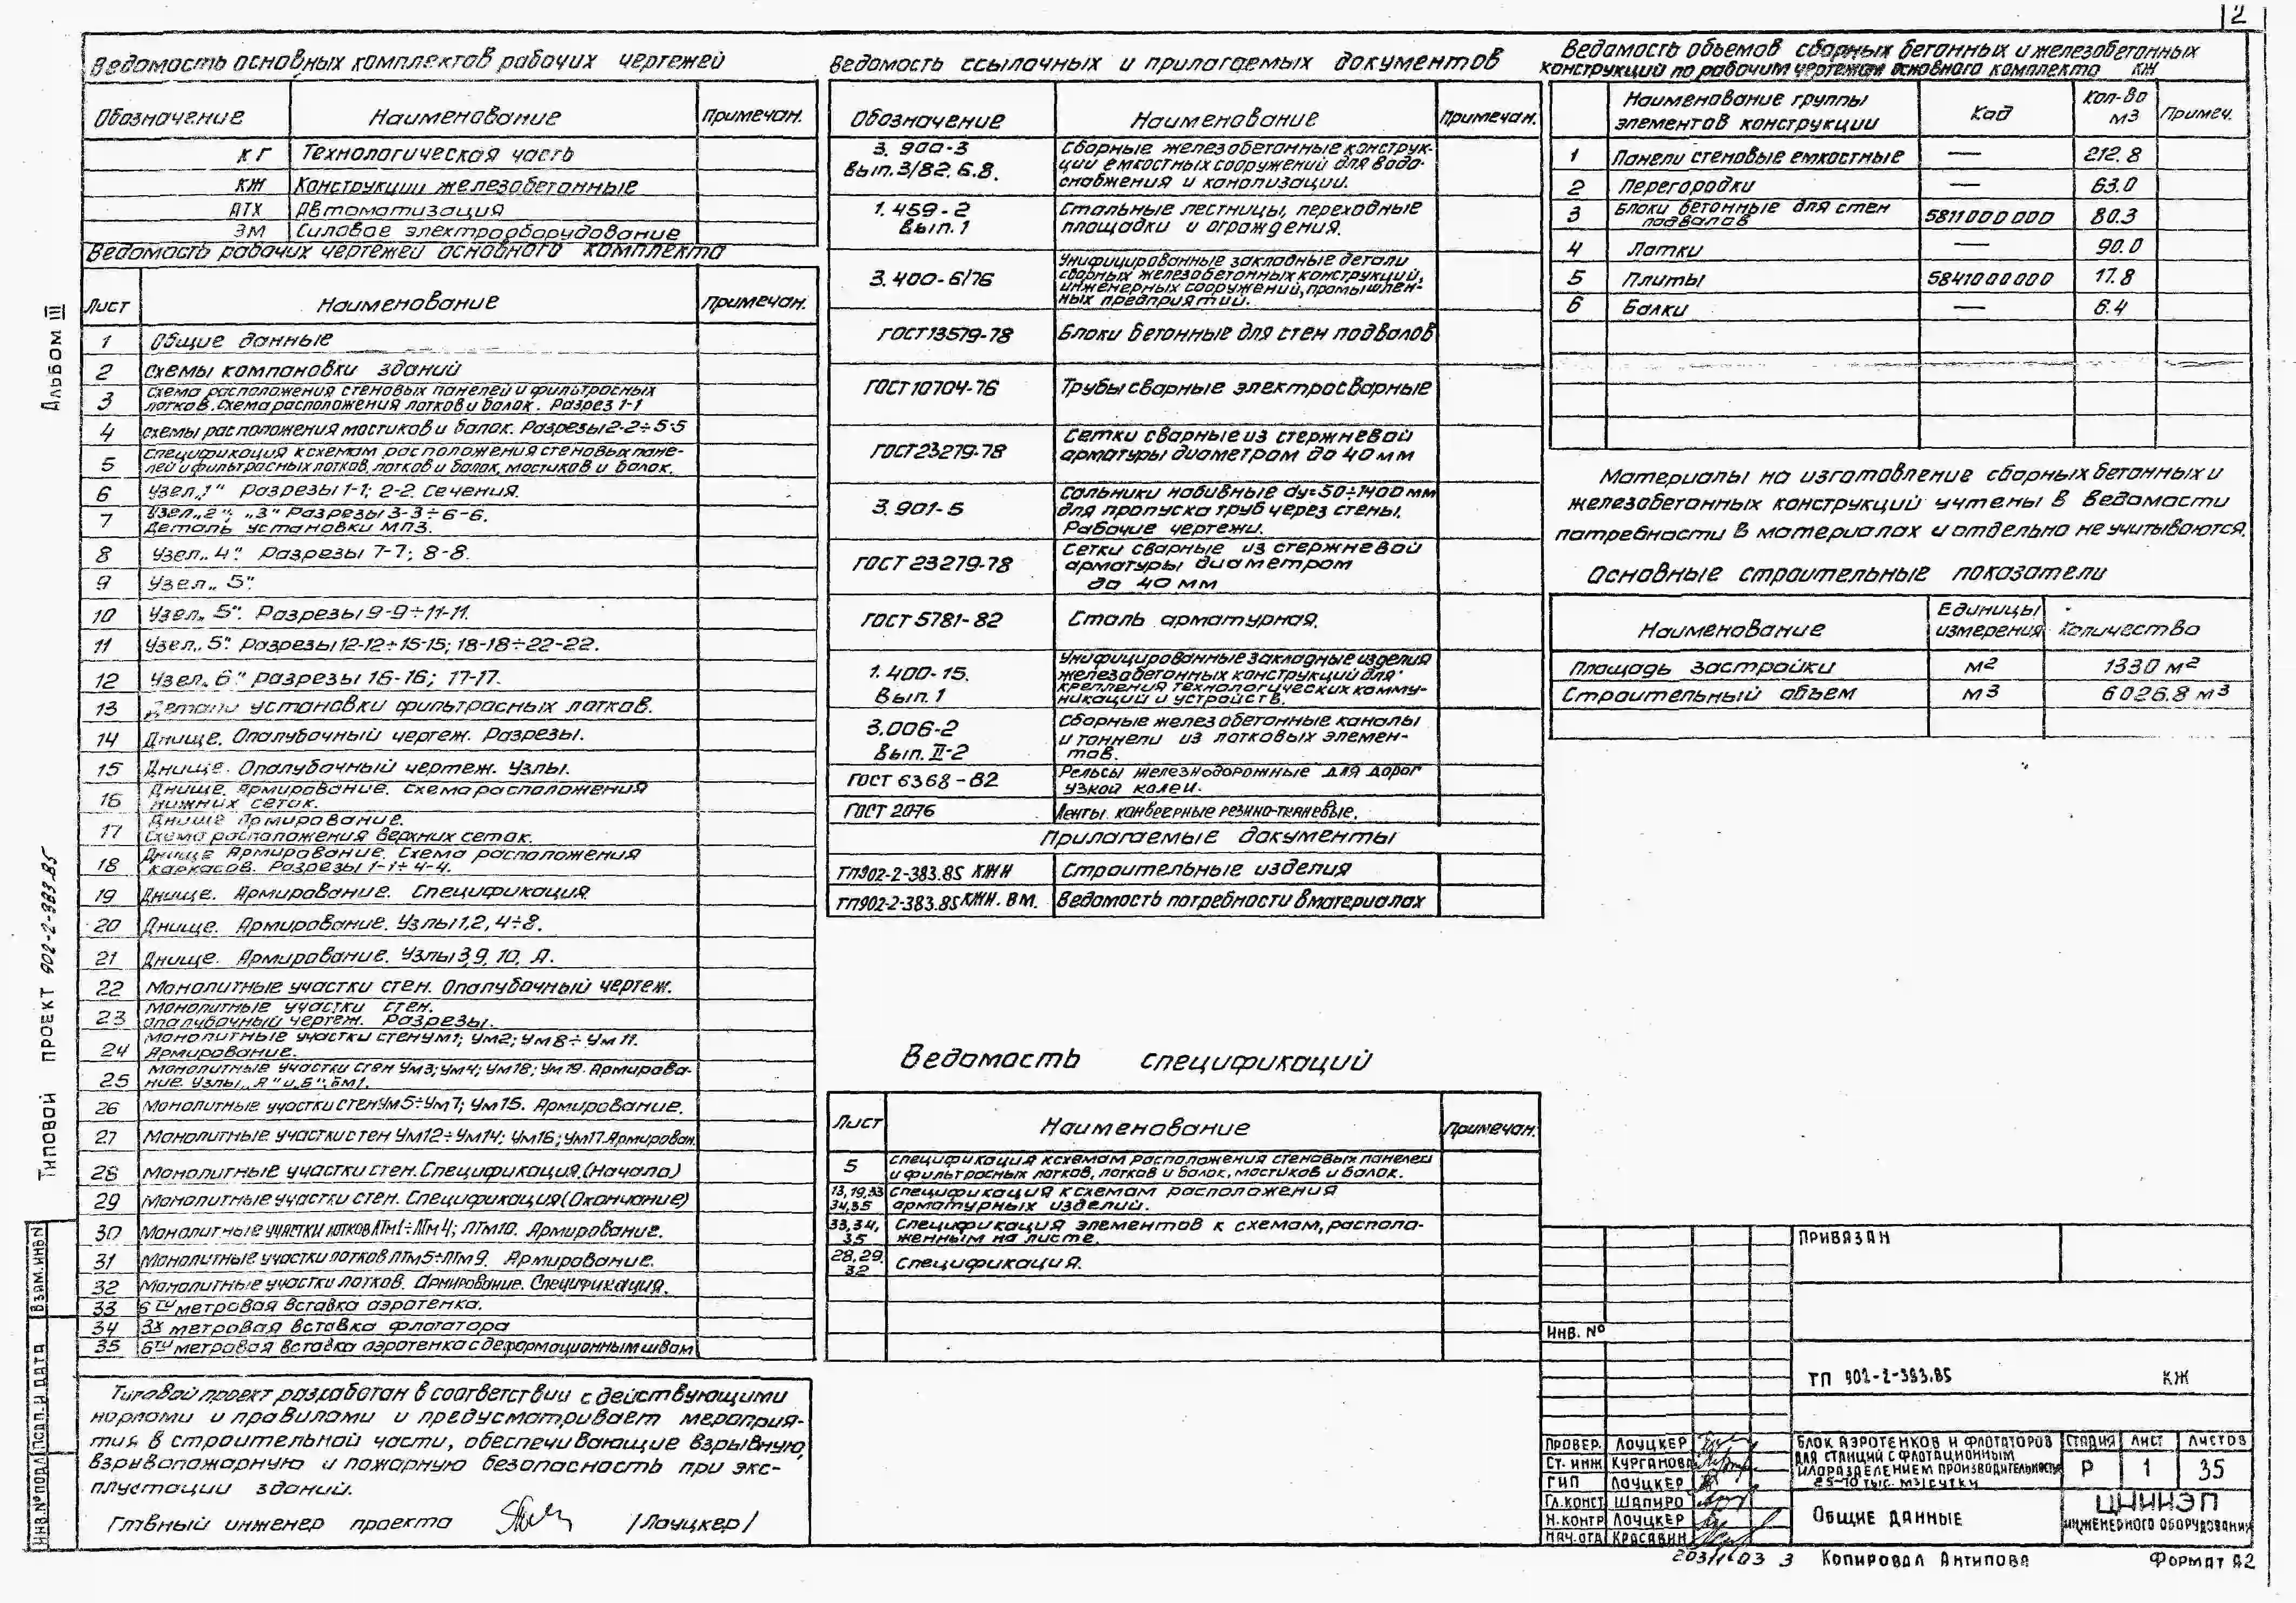 2
Ведомость основных комплектов рабочих чертежей
Обозначение Наименование Примечан.
КГ Технологическая часть
КЖ Конструкции железобетонные
АТХ Автоматизация
ЭМ Силовое электрооборудование
Ведомость рабочих чертежей основного комплекта
Лист Наименование Примечан.
1 Общие данные
2 Схемы компановки зданий
3 Схема расположения стеновых панелей и фильтросных
лотков. Схема расположения лотков и балок. Разрез 1-1
4 Схемы расположения мостиков и балок. Разрезы 2-2÷5-5
5 Спецификация к схемам расположения стеновых пане-
лей и фильтросных лотков, лотков и балок, мостиков и балок.
6 Узел „1" Разрезы 1-1; 2-2. Сечения.
7 Узел „2"; „3" Разрезы 3-3÷6-6.
Деталь установки МПЗ.
8 Узел „4". Разрезы 7-7; 8-8.
9 Узел „5".
10 Узел „5". Разрезы 9-9÷11-11.
11 Узел „5". Разрезы 12-12÷15-15; 18-18÷22-22.
12 Узел „6" разрезы 16-16; 17-17.
13 Детали установки фильтросных лотков.
14 Днище. Опалубочный чертеж. Разрезы.
15 Днище. Опалубочный чертеж. Узлы.
16 Днище. Армирование. Схема расположения
нижних сеток.
17 Днище Армирование.
Схема расположения верхних сеток.
18 Днище Армирование. Схема расположения
каркасов. Разрезы 1-1÷4-4.
19 Днище. Армирование. Спецификация.
20 Днище. Армирование. Узлы 1,2, 4÷8.
21 Днище. Армирование. Узлы 3,9, 10, А.
22 Монолитные участки стен. Опалубочный чертеж.
23 Монолитные участки стен.
Опалубочный чертеж. Разрезы.
24 Монолитные участки стен Ум1; Ум2; Ум8÷Ум11.
Армирование.
25 Монолитные участки стен Ум3; Ум4; Ум18; Ум19. Армирова-
ние. Узлы „А" и „Б"; Бм1.
26 Монолитные участки стен Ум5÷Ум7; Ум15. Армирование.
27 Монолитные участки стен Ум12÷Ум14; Ум16; Ум17. Армирован.
28 Монолитные участки стен. Спецификация. (Начало)
29 Монолитные участки стен. Спецификация (Окончание)
30 Монолитные участки лотков ЛТм1÷ЛТм4; ЛТм10. Армирование.
31 Монолитные участки лотков ЛТм5÷ЛТм9. Армирование.
32 Монолитные участки лотков. Армирование. Спецификация.
33 6ти метровая вставка аэротенка.
34 3х метровая вставка флотатора
35 6ти метровая вставка аэротенка с деформационным швом
Типовой проект разработан в соответствии с действующими
нормами и правилами и предусматривает мероприя-
тия в строительной части, обеспечивающие взрывную,
взрывопожарную и пожарную безопасность при экс-
плуатации зданий.
Главный инженер проекта /Лоуцкер/
Ведомость ссылочных и прилагаемых документов
Обозначение Наименование Примечан.
3.900-3 Вып. 3/82, 6.8. Сборные железобетонные конструк-
ции емкостных сооружений для водо-
снабжения и канализации.
1.459-2 Вып. 1 Стальные лестницы, переходные
площадки и ограждения.
3.400-6/76 Унифицированные закладные детали
сборных железобетонных конструкций,
инженерных сооружений, промышлен-
ных предприятий.
ГОСТ 13579-78 Блоки бетонные для стен подвалов
ГОСТ 10704-76 Трубы сварные электросварные
ГОСТ 23279-78 Сетки сварные из стержневой
арматуры диаметром до 40 мм
3.901-5 Сальники набивные dу=50÷1400 мм
для пропуска труб через стены.
Рабочие чертежи.
ГОСТ 23279-78 Сетки сварные из стержневой
арматуры диаметром
до 40 мм
ГОСТ 5781-82 Сталь арматурная.
1.400-15. Вып. 1 Унифицированные закладные изделия
железобетонных конструкций для
крепления технологических комму-
никаций и устройств.
3.006-2 Вып. II-2 Сборные железобетонные каналы
и тоннели из лотковых элемен-
тов.
ГОСТ 6368-82 Рельсы железнодорожные для дорог
узкой колеи.
ГОСТ 2076 Ленты конвеерные резино-тканевые.
Прилагаемые документы
ТП902-2-383.85 КЖИ Строительные изделия
ТП902-2-383.85 КЖИ. ВМ. Ведомость потребности в материалах
Ведомость спецификаций
Лист Наименование Примечан.
5 Спецификация к схемам расположения стеновых панелей
и фильтросных лотков, лотков и балок, мостиков и балок.
13, 19, 33 Спецификация к схемам расположения
34,35 арматурных изделий.
33,34, Спецификация элементов к схемам, располо-
35 женным на листе.
28,29. Спецификация.
32
Ведомость объемов сборных бетонных и железобетонных
конструкций по рабочим чертежам основного комплекта КЖ
Наименование группы элементов конструкции Код Кол-во м3 Примеч.
1 Панели стеновые емкостные — 212.8
2 Перегородки — 63.0
3 Блоки бетонные для стен подвалов 5811000000 80.3
4 Лотки — 90.0
5 Плиты 5841000000 17.8
6 Балки — 6.4
Материалы на изготовление сборных бетонных и
железобетонных конструкций учтены в ведомости
потребности в материалах и отдельно не учитываются.
Основные строительные показатели
Наименование Единицы измерения Количество
Площадь застройки м2 1330 м2
Строительный объем м3 6026.8 м3
Привязан
Инв. №
ТП 902-2-383.85 КЖ
Провер. Лоуцкер
Ст. инж Курганова
ГИП Лоуцкер
Гл. конст Шапиро
Н. контр Лоуцкер
Нач. отд Красавин
Блок аэротенков и флотаторов
для станций с флотационным
илоразделением производительностью
25-70 тыс. м3/сутки
Стадия Лист Листов
Р 1 35
Общие данные
ЦНИИЭП
инженерного оборудования
Копировал Антипова
Формат А2
Альбом III
Типовой проект 902-2-383.85
Взам. инв N
Подп. и дата
Инв. № подл